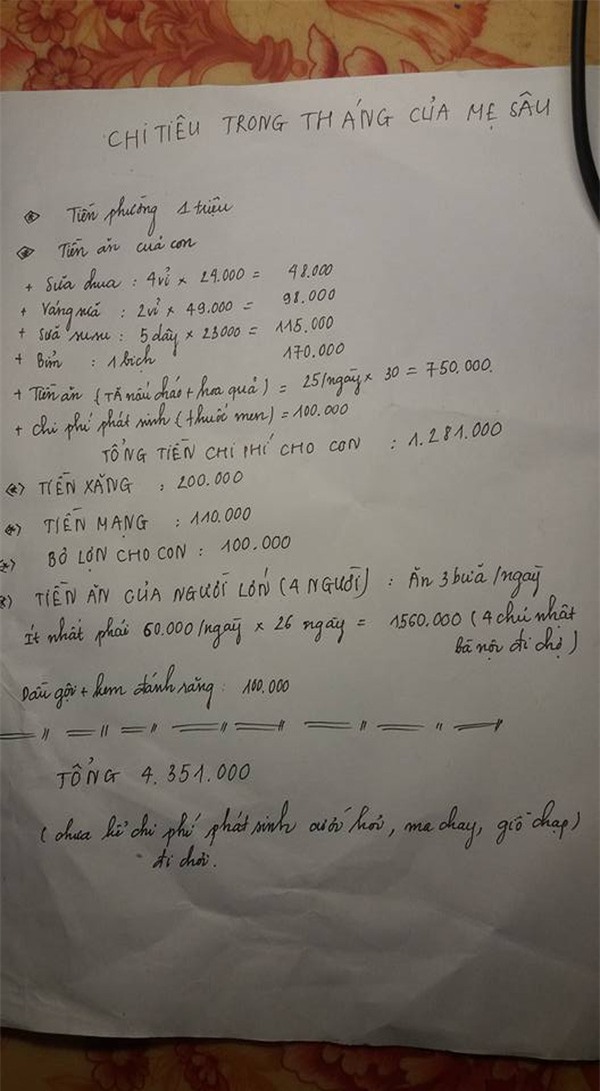 CHI TIÊU TRONG THÁNG CỦA MẸ SÂU
Tiền phường 1 triệu
Tiền ăn cuả con
+ Sữa chua : 4 vỉ x 24.000 = 48.000
+ Váng sữa : 2 vỉ x 49.000 = 98.000
+ Sữa susu : 5 dây x 23000 = 115.000
+ Bỉm : 1 bịch 170.000
+ Tiền ăn (TĂ nấu cháo + hoa quả) = 25/ngày x 30 = 750.000.
+ chi phí phát sinh (thuốc men) = 100.000
TỔNG TIỀN CHI PHÍ CHO CON : 1.281.000
(*) TIỀN XĂNG : 200.000
(*) TIỀN MẠNG : 110.000
(*) BỎ LỢN CHO CON : 100.000
(*) TIỀN ĂN CỦA NGƯỜI LỚN (4 NGƯỜI) : Ăn 3 bưã /ngaỳ
Ít nhất phải 60.000/ngaỳ x 26 ngaỳ = 1560.000 (4 chủ nhật
bà nội đi chợ)
Dầu gội + kem đánh răng : 100.000
TỔNG 4.351.000
(chưa kể chi phí phát sinh cưới hỏi, ma chay, giỗ chạp)
đi chơi.